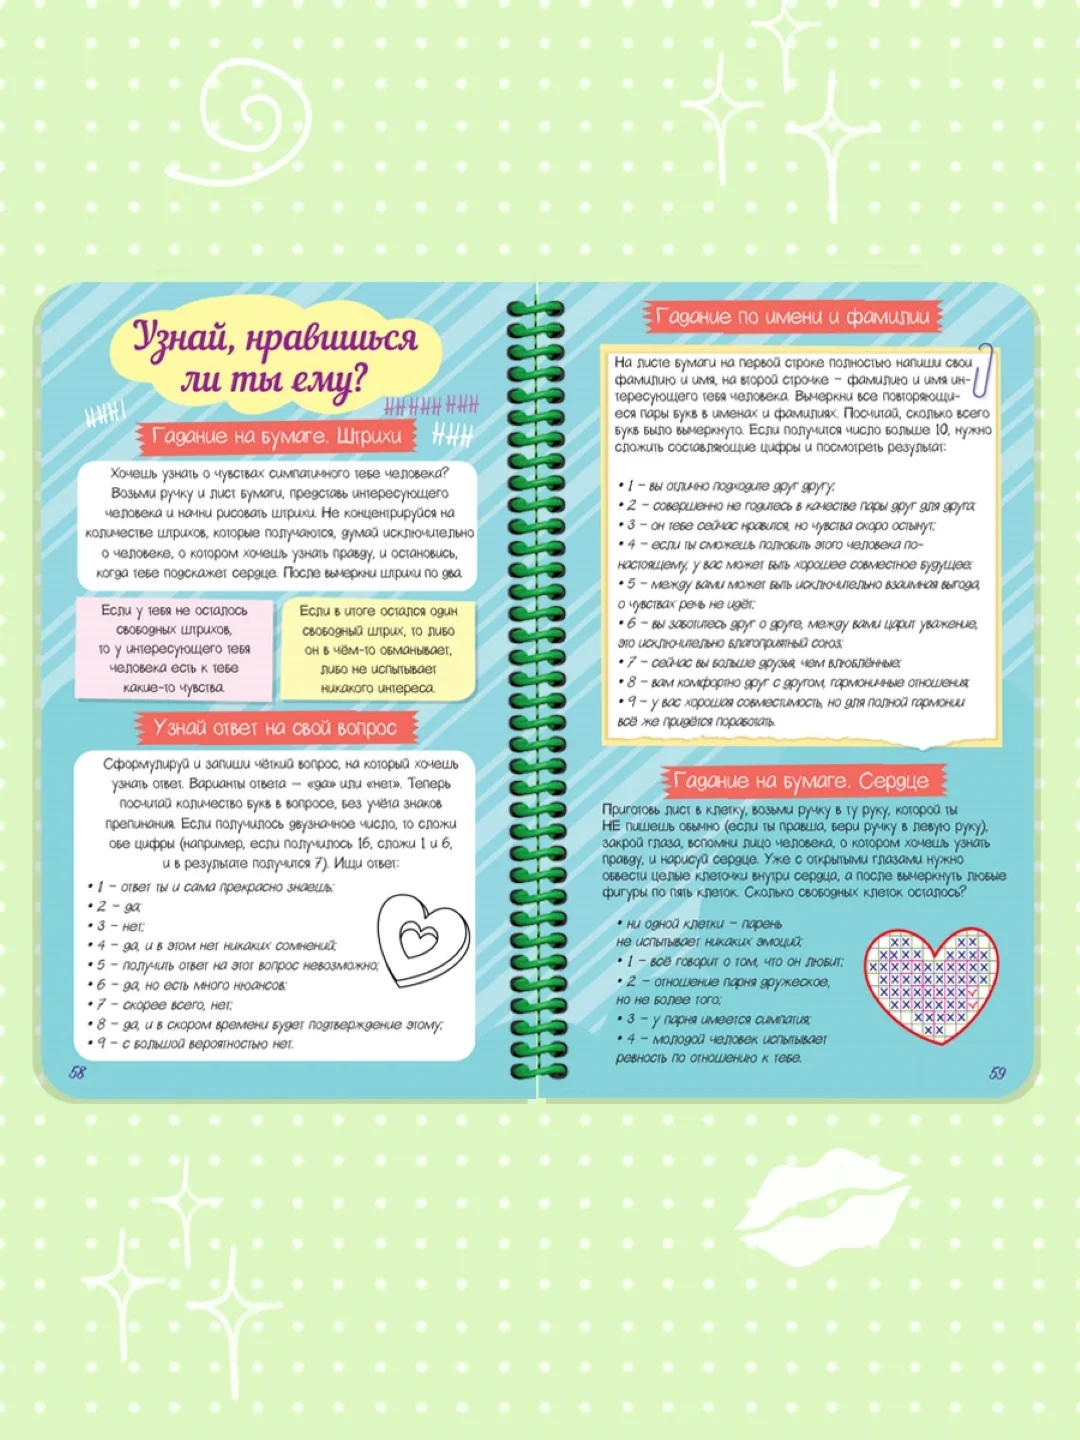 Узнай, нравишься
ли ты ему?
Гадание на бумаге. Штрихи
Хочешь узнать о чувствах симпатичного тебе человека?
Возьми ручку и лист бумаги, представь интересующего
человека и начни рисовать штрихи. Не концентрируйся на
количестве штрихов, которые получаются, думай исключительно
о человеке, о котором хочешь узнать правду, и остановись,
когда тебе подскажет сердце. После вычеркни штрихи по два.
Если у тебя не осталось
свободных штрихов,
то у интересующего тебя
человека есть к тебе
какие-то чувства.
Если в итоге остался один
свободный штрих, то либо
он в чём-то обманывает,
либо не испытывает
никакого интереса.
Узнай ответ на свой вопрос
Сформулируй и запиши чёткий вопрос, на который хочешь
узнать ответ. Варианты ответа – «да» или «нет». Теперь
посчитай количество букв в вопросе, без учёта знаков
препинания. Если получилось двузначное число, то сложи
обе цифры (например, если получилось 16, сложи 1 и 6,
и в результате получится 7). Ищи ответ:
• 1 – ответ ты и сама прекрасно знаешь;
• 2 – да;
• 3 – нет;
• 4 – да, и в этом нет никаких сомнений;
• 5 – получить ответ на этот вопрос невозможно;
• 6 – да, но есть много нюансов;
• 7 – скорее всего, нет;
• 8 – да, и в скором времени будет подтверждение этому;
• 9 – с большой вероятностью нет.
58
Гадание по имени и фамилии
На листе бумаги на первой строке полностью напиши свои
фамилию и имя, на второй строчке – фамилию и имя ин-
тересующего тебя человека. Вычеркни все повторяющи-
еся пары букв в именах и фамилиях. Посчитай, сколько всего
букв было вычеркнуто. Если получится число больше 10, нужно
сложить составляющие цифры и посмотреть результат:
• 1 – вы отлично подходите друг другу;
• 2 – совершенно не годитесь в качестве пары друг для друга;
• 3 – он тебе сейчас нравится, но чувства скоро остынут;
• 4 – если ты сможешь полюбить этого человека по-
настоящему, у вас может быть хорошее совместное будущее;
• 5 – между вами может быть исключительно взаимная выгода,
о чувствах речь не идёт;
• 6 – вы заботитесь друг о друге, между вами царит уважение,
это исключительно благоприятный союз;
• 7 – сейчас вы больше друзья, чем влюблённые;
• 8 – вам комфортно друг с другом, гармоничные отношения;
• 9 – у вас хорошая совместимость, но для полной гармонии
всё же придётся поработать.
Гадание на бумаге. Сердце
Приготовь лист в клетку, возьми ручку в ту руку, которой ты
НЕ пишешь обычно (если ты правша, бери ручку в левую руку),
закрой глаза, вспомни лицо человека, о котором хочешь узнать
правду, и нарисуй сердце. Уже с открытыми глазами нужно
обвести целые клеточки внутри сердца, а после вычеркнуть любые
фигуры по пять клеток. Сколько свободных клеток осталось?
• ни одной клетки – парень
не испытывает никаких эмоций;
• 1 – всё говорит о том, что он любит;
• 2 – отношение парня дружеское,
но не более того;
• 3 – у парня имеется симпатия;
• 4 – молодой человек испытывает
ревность по отношению к тебе.
59